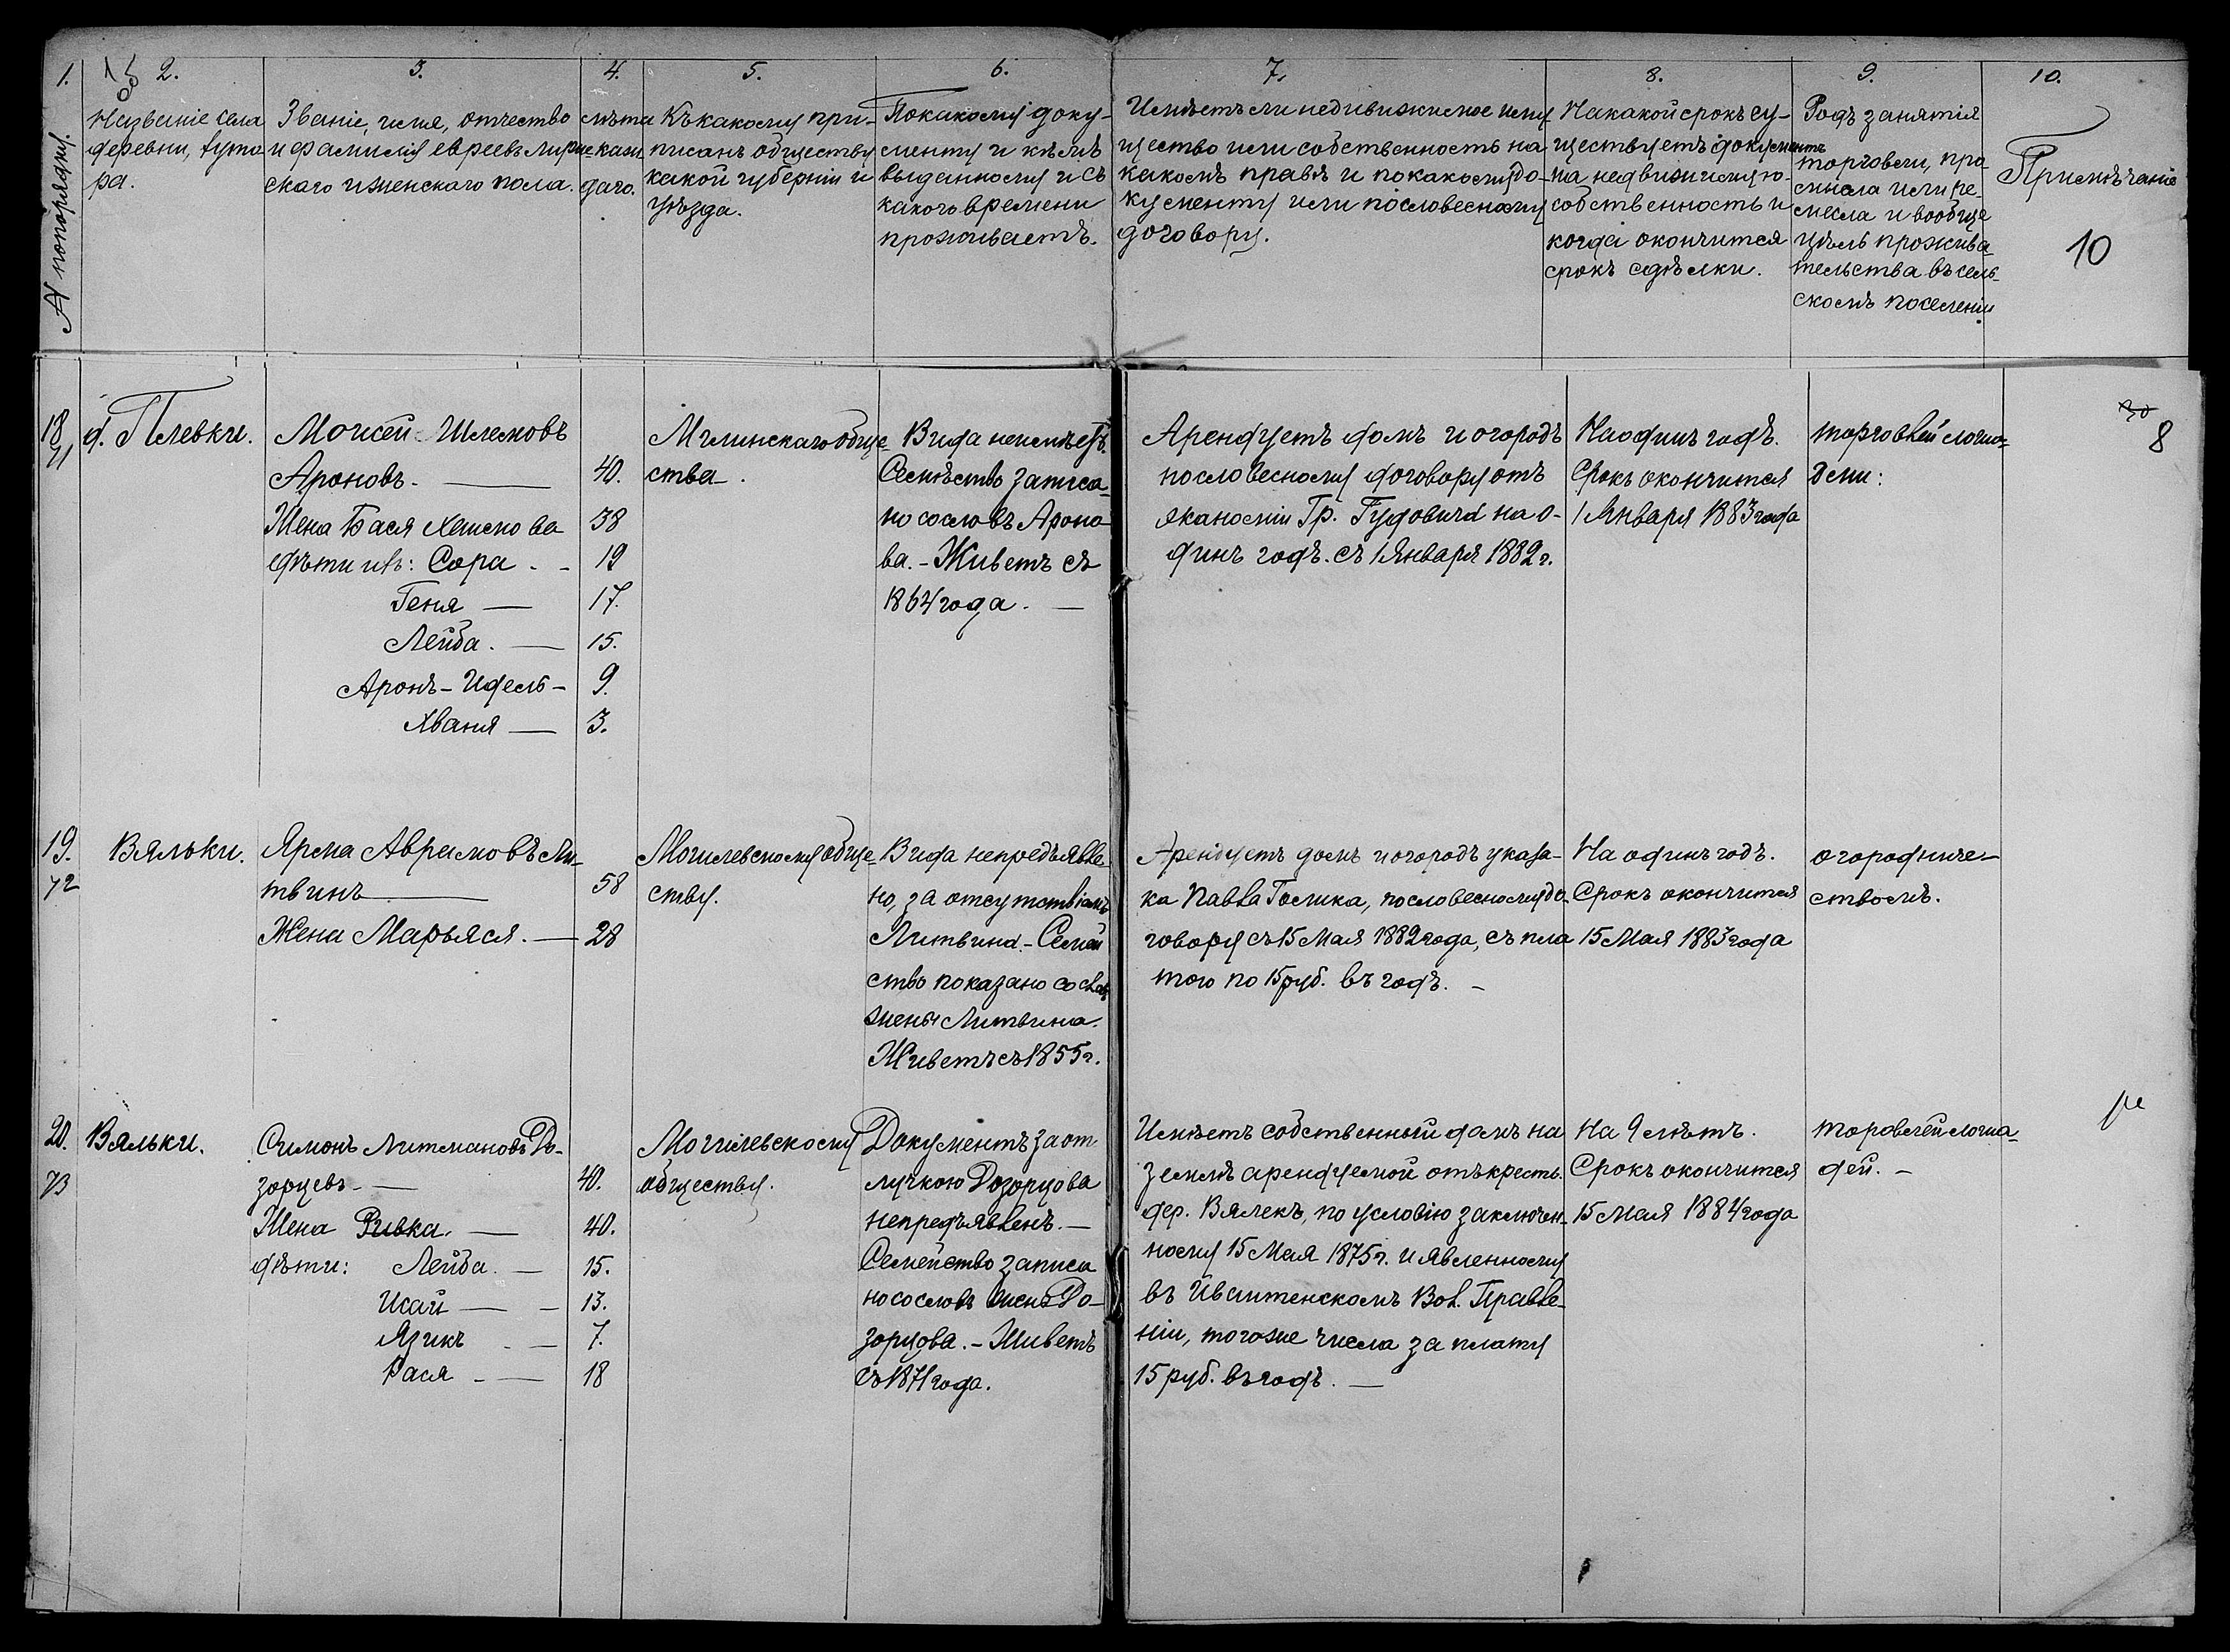 1. 2. 3. 4. 5. 6. 7. 8. 9. 10.
№ попорядку.
Названіе села
деревни, хуто
ра.
Званіе, имя, отчество
и фамилія евреевъ мужс
скаго и женскаго пола.
лѣта
кажд
даго.
Къ какому при-
писанъ обществу
какой губерніи и
уѣзда.
По какому доку-
менту и кѣмъ
выданному и съ
какого времени
проживаетъ.
Имѣетъ ли недвижимое иму-
щество или собственность на
какомъ правѣ и по какому до-
кументу или по словесному
договору.
На какой срокъ су-
ществуетъ документъ
на недвижимую
собственность и
когда окончится
срокъ сдѣлки.
Родъ занятія
торговли, про-
мысла или ре-
месла и вообще
цѣль прожива-
тельства въ сель-
скомъ поселеніи
Примѣчаніе
10
18
71
д. Плевки.
Моисей Шлемовъ
Ароновъ. — 40.
Жена Бася Хаимова 38
дѣти ихъ: Сора - 19
Геня — 17.
Лейба. — 15.
Аронъ-Идель - 9.
Хваня — 3.
Мглинскаго обще-
ства.
Вида неимѣетъ.
Семѣство записа-
но со словъ Ароно-
ва. - Живетъ съ
1864 года. —
Арендуетъ домъ и огородъ
по словесному договору отъ
экономіи Гр. Гудовича на о-
динъ годъ. съ 1 Января 1882 г.
На одинъ годъ.
Срокъ окончится
1 Января 1883 года
торговлей лоша-
дьми:
8
19.
72
Вяльки.
Ярма Аврамовъ Ли-
твинъ — 58
Жена Марьяся. — 28
Могилевскому обще-
ству.
Вида непредъявле-
но, за отсутствіемъ
Литвина. - Семей
ство показано со словъ
жены Литвина.
Живетъ съ 1855 г.
Арендуетъ домъ и огородъ у каза-
ка Павла Гомика, по словесному до-
говору съ 15 Мая 1882 года, съ пла
тою по 15 руб. въ годъ. -
На одинъ годъ.
Срокъ окончится
15 Мая 1883 года
огородниче-
ствомъ.
20.
73
Вяльки.
Симонъ Литмановъ До-
зорцевъ — 40.
Жена Ривка. — 40.
дѣти: Лейба. — 15.
Исай — 13.
Язикъ — 7.
Рася — 18
Могилевскому
обществу.
Документъ за от
лучкою Дозорцова
непредъявленъ. —
Семейство записа
но со словъ жены До-
зорцова. - Живетъ
съ 1871 года.
Имѣетъ собственный домъ на
землѣ арендуемой отъ кресть.
дер. Вялекъ, по условію заключен-
ному 15 Мая 1875 г. и явленному
въ Ивайтенскомъ Вол. Правле-
ніи, тогоже числа за плату
15 руб. въ годъ. —
На 9 лѣтъ.
Срокъ окончится
15 Мая 1884 года
торовлей лоша-
дей. -